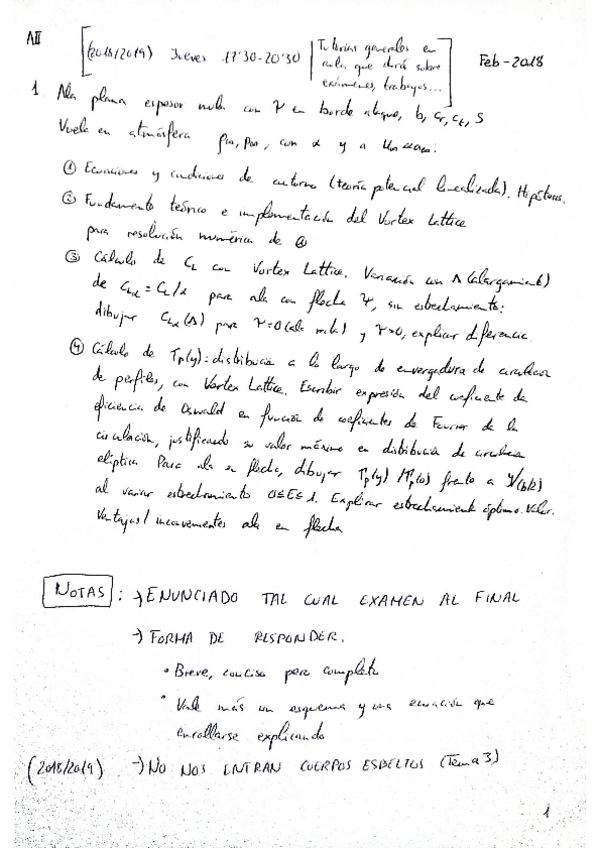 AII
[(2018/2019) Jueves 17'30-20'30 | Tutorías generales en
aula que dará sobre
exámenes, trabajos...]
Feb-2018
1 Ala plana espesor nulo con Ψ en borde ataque, b, cr, ct, S
Vuela en atmósfera ρ∞, p∞, con α y a U∞
① Ecuaciones y condiciones de contorno (teoría potencial linealizada). Hipótesis.
② Fundamento teórico e implementación del Vortex Lattice
para resolución numérica de ①
③ Cálculo de CL con Vortex Lattice. Variación con Λ (alargamiento)
de CLα = CL/α para ala con flecha Ψ, sin estrechamiento:
dibujar CLα(Λ) para Ψ=0 (ala recta) y Ψ>0, explicar diferencia
④ Cálculo de Γp(y): distribución a lo largo de envergadura de circulación
de perfiles, con Vortex Lattice. Escribir expresión del coeficiente de
eficiencia de Oswald en función de coeficientes de Fourier de la
circulación, justificando su valor máximo en distribución de circulación
elíptica. Para ala sin flecha, dibujar Γp(y)/Γp(0) frente a y/(b/2)
al variar estrechamiento 0≤E≤1. Explicar estrechamiento óptimo. Valor.
Ventajas/inconvenientes ala en flecha
NOTAS: → ENUNCIADO TAL CUAL EXAMEN AL FINAL
→ FORMA DE RESPONDER.
• Breve, conciso pero completo
• Vale más un esquema y una ecuación que
enrollarse explicando
(2018/2019) → NO NOS ENTRAN CUERPOS ESBELTOS (Tema 3)
1